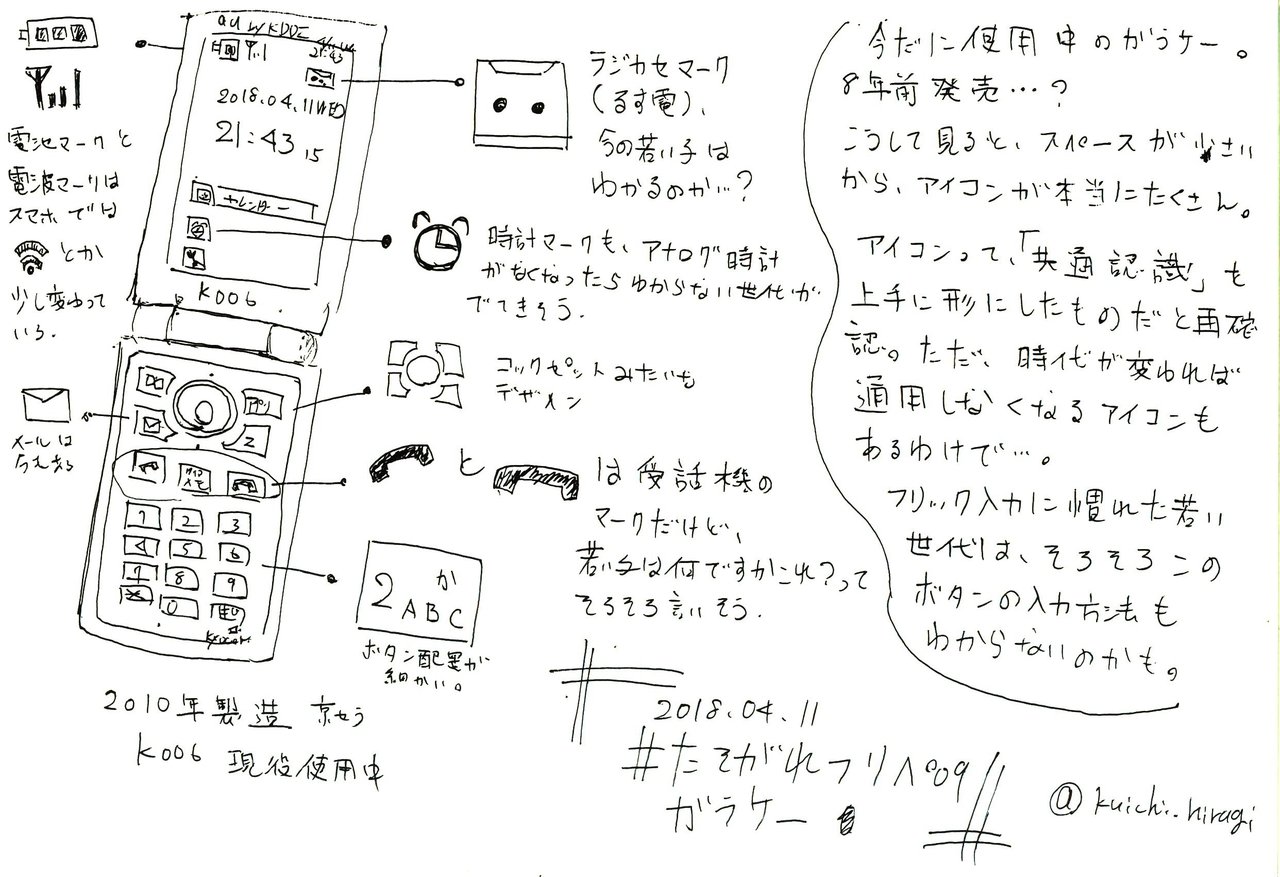 au by KDDI
21:43
2018.04.11 WED
21:43 15
カレンダー
K006
アプリ
クイックメモ
1 2 3
4 5 6
7 8 9
* 0 #
電池マークと
電波マークは
スマホでは
とか
少し変わって
いる.
メールは
ラジカセマーク
(るす電)、
今の若い子は
わかるのか…?
時計マークも、アナログ時計
がなくなったらわからない世代が
でてきそう.
コックピットみたいな
デザイン
と は受話機の
マークだけど、
若い子は何ですかこれ?って
そろそろ言いそう.
2 か
ABC
ボタン配置が
細かい。
2010年製造 京セラ
K006 現役使用中
今だに使用中のガラケー。
8年前発売…?
こうして見ると、スペースが小さい
から、アイコンが本当にたくさん。
アイコンって、「共通認識」を
上手に形にしたものだと再確
認。ただ、時代が変われば
通用しなくなるアイコンも
あるわけで…。
フリック入力に慣れた若い
世代は、そろそろこの
ボタンの入力方法も
わからないのかも。
2018.04.11
#たそがれフリペ09
ガラケー
@kuichi.hiragi